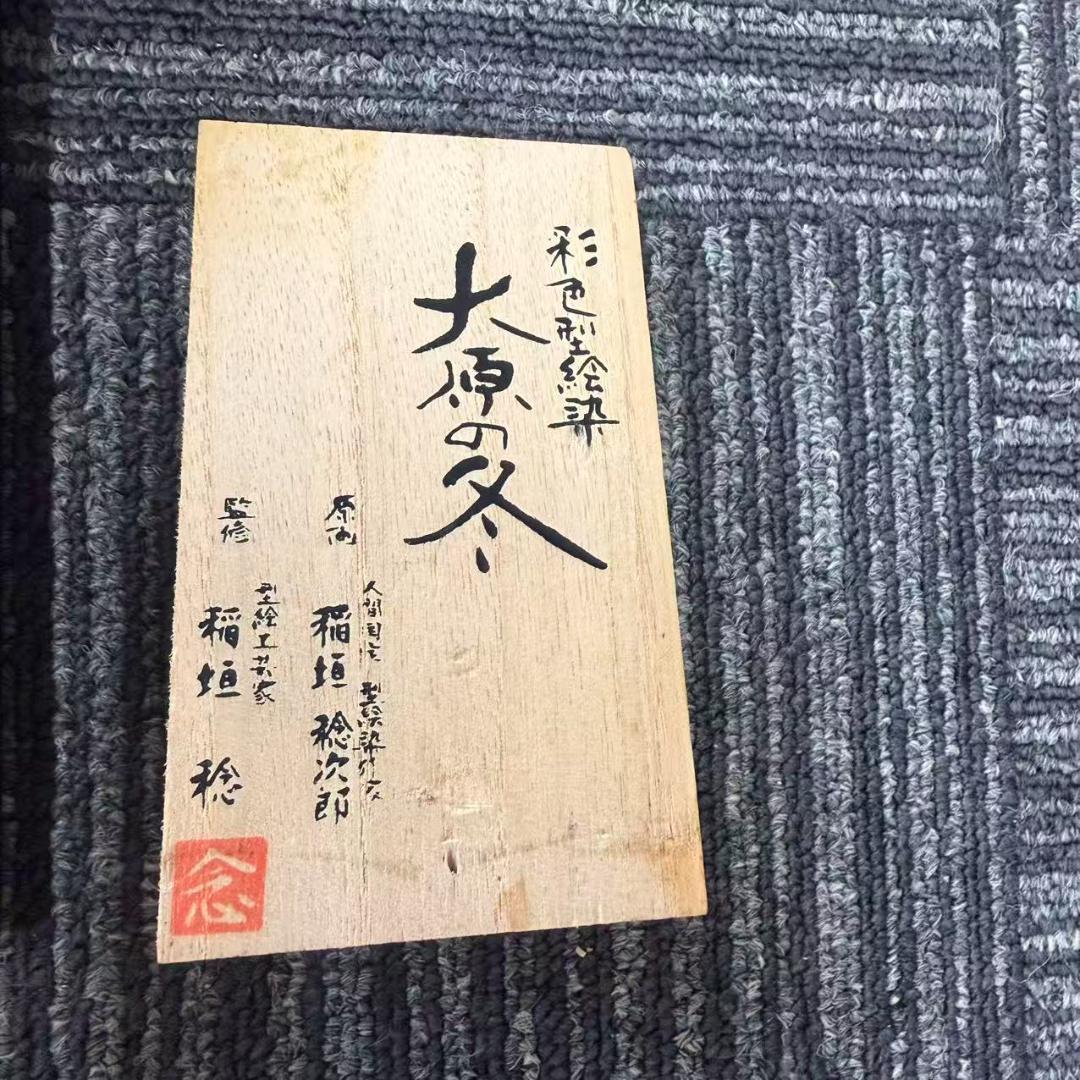 彩色型絵染
大原の冬
原画
人間国宝 型絵染作家
稲垣 稔次郎
監修
型絵工芸家
稲垣 稔
念